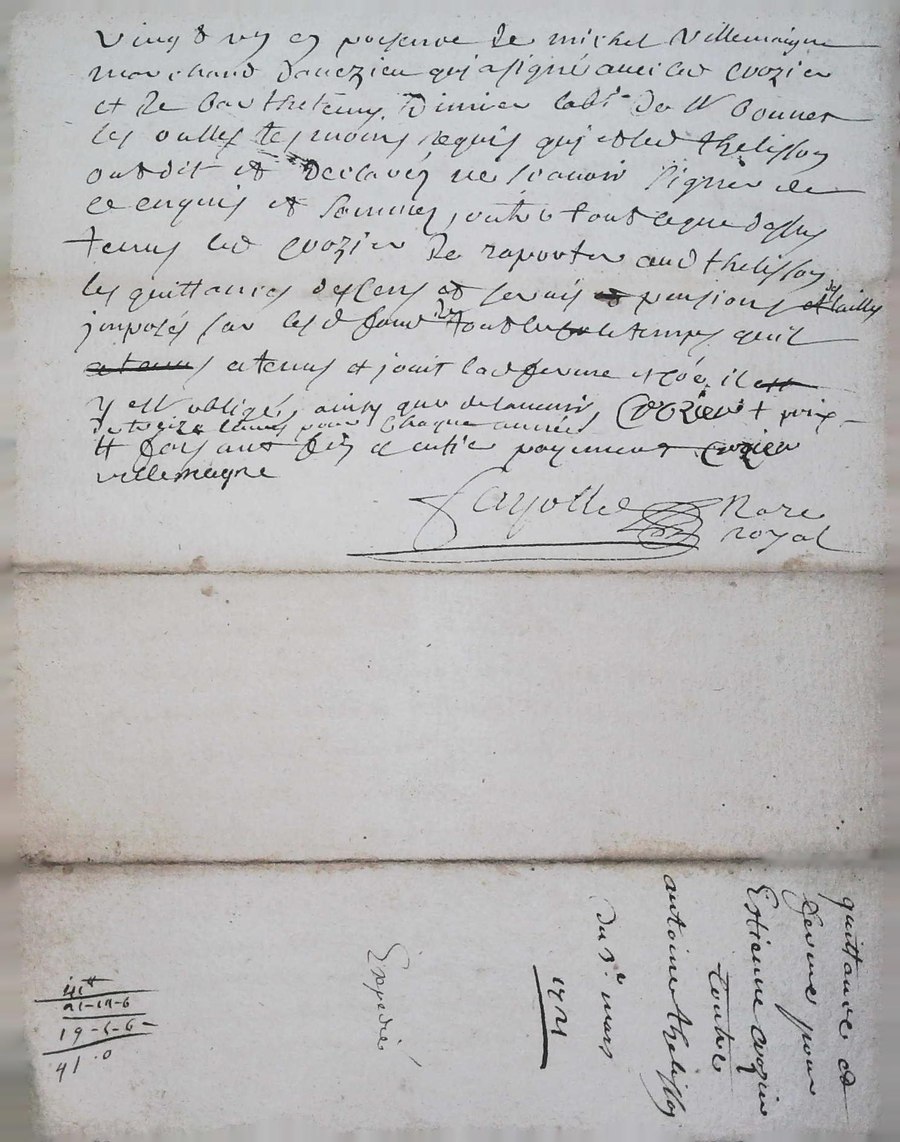 vingt un en presence de michel Villemaigne
marchand dauezieu qui a signé auec led crozier
et de barthelemy Dimier lab.r de St bonnet
les oulles tesmoins requis qui et led thelisson
ont dit et declarés ne scauoir signer de
ce enquis et sommés, outre tout ce que dessus
tenus led crozier de raporter aud thelisson
les quittances des cens et seruis pensions des tailles
imposés sur les d fond tout le temps quil
a tenus et jouit lad ferme
y est obligé, ainsy que delauenir Crozier + prix
de treize liures pour chaque années
et payement crozier
villemagne
Fayolle Nore
royal
quittance et
ferme pour
Estienne crozier
contre
antoine thelisson
du 3.e mars
1721
Expedié
41
21-14-6
19-5-6-
41.0